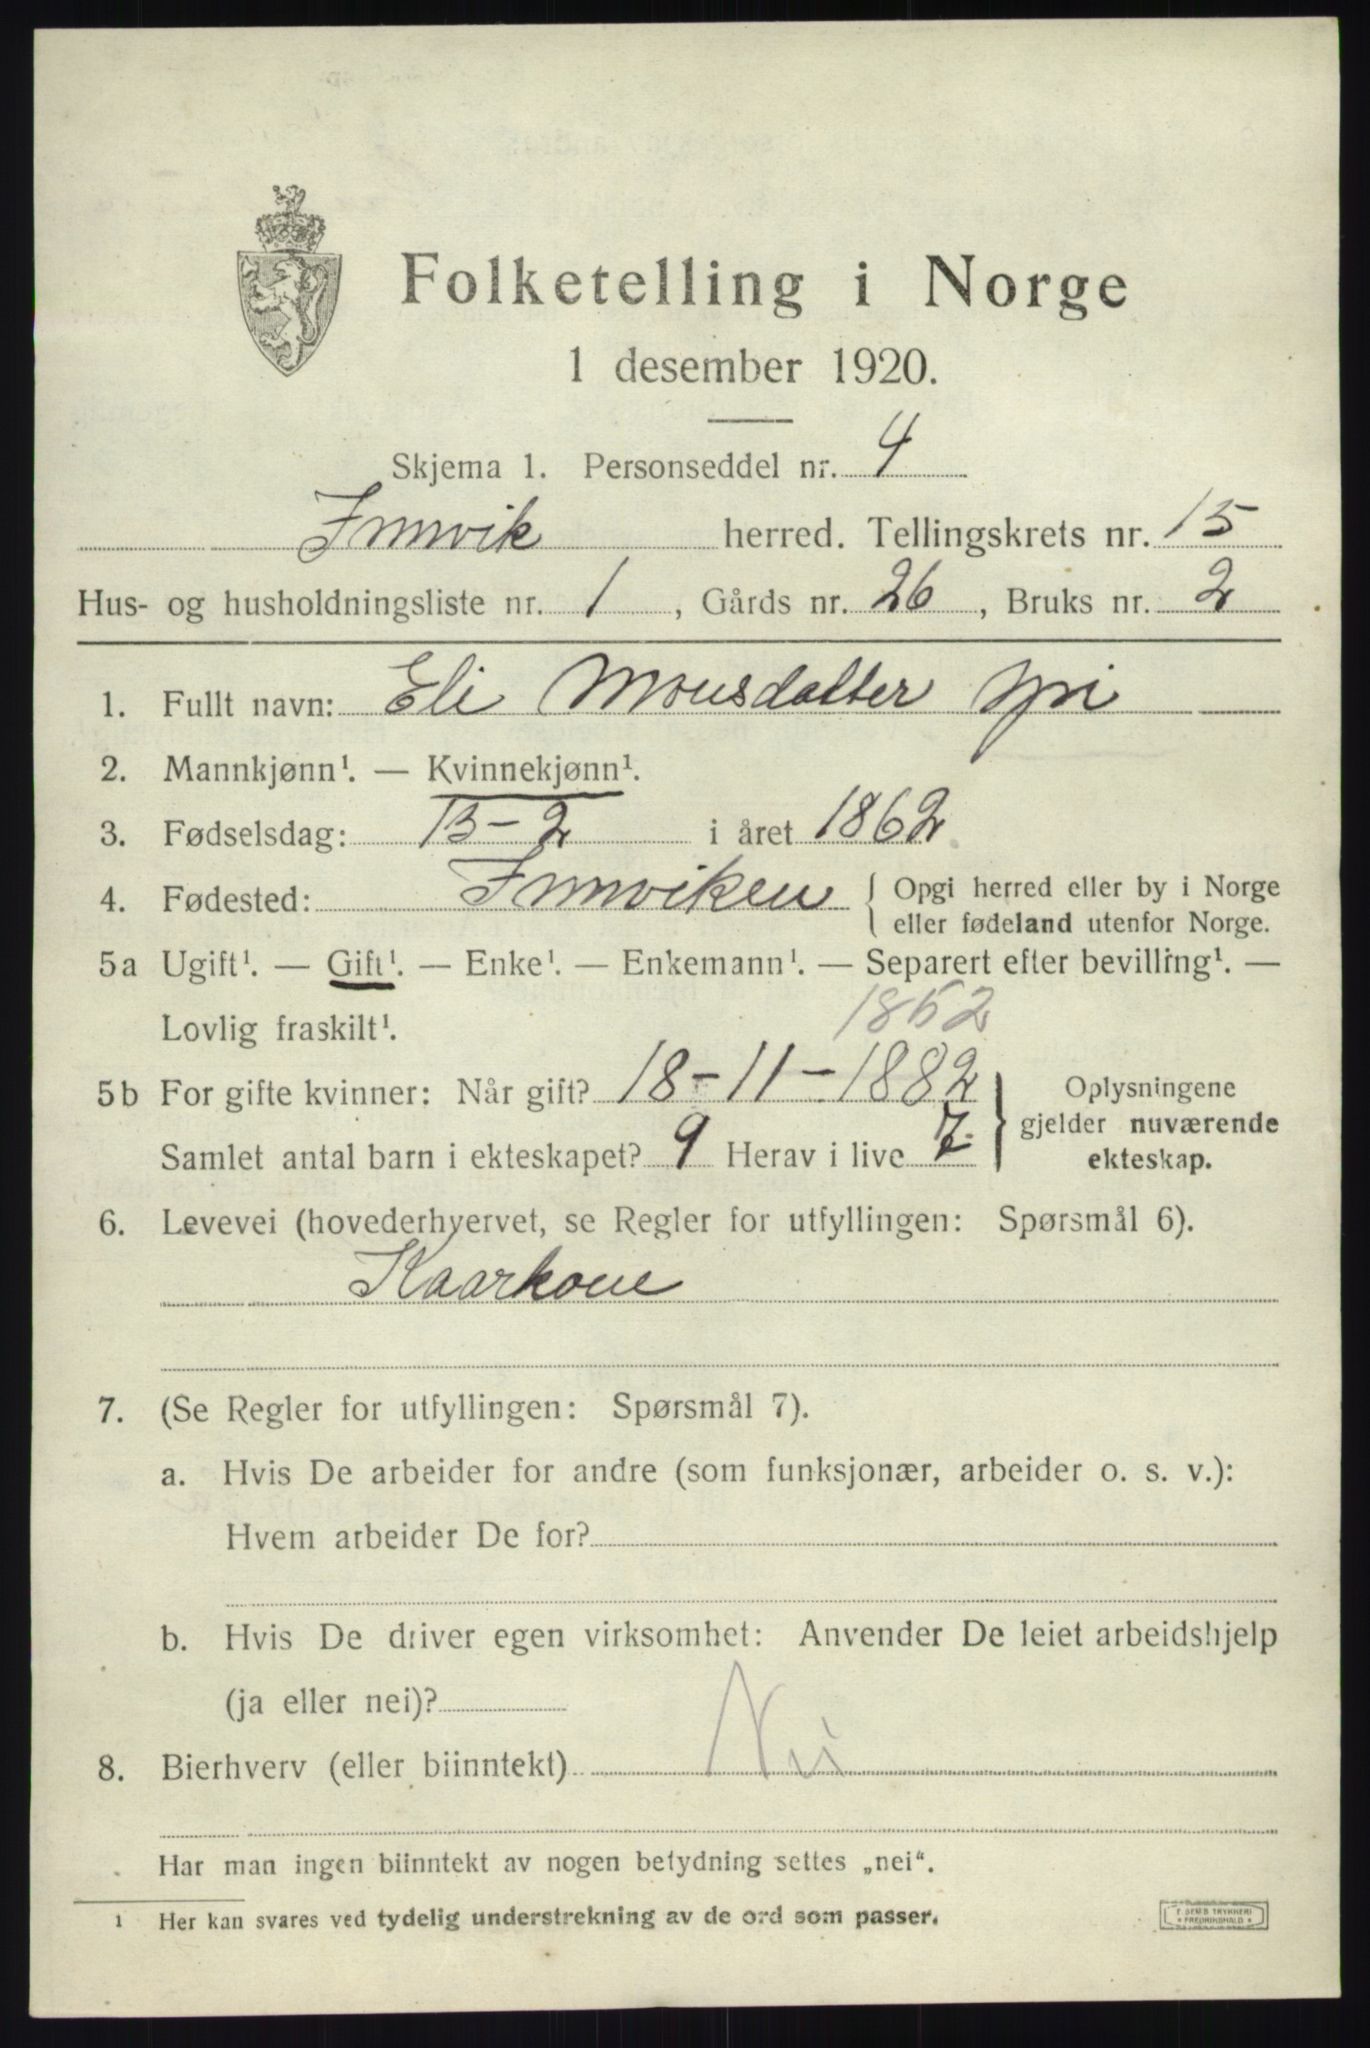 Folketelling i Norge
1 desember 1920.
Skjema 1. Personseddel nr. 4
Innvik herred. Tellingskrets nr. 15
Hus- og husholdningsliste nr. 1, Gårds nr. 26, Bruks nr. 2
1. Fullt navn: Eli Monsdatter Ypri
2. Mannkjønn¹. — Kvinnekjønn¹.
3. Fødselsdag: 13-2 i året 1862
4. Fødested: Innviken { Opgi herred eller by i Norge
eller fødeland utenfor Norge.
5a Ugift¹. — Gift¹. — Enke¹. — Enkemann¹. — Separert efter bevilling¹. —
Lovlig fraskilt¹.
1862
5b For gifte kvinner: Når gift? 18-11-1882
Samlet antal barn i ekteskapet? 9 Herav i live 7
} Oplysningene
gjelder nuværende
ekteskap.
6. Levevei (hovederhvervet, se Regler for utfyllingen: Spørsmål 6).
Kaarkone
7. (Se Regler for utfyllingen: Spørsmål 7).
a. Hvis De arbeider for andre (som funksjonær, arbeider o. s. v.):
Hvem arbeider De for?
b. Hvis De driver egen virksomhet: Anvender De leiet arbeidshjelp
(ja eller nei)?
8. Bierhverv (eller biinntekt) Nei
Har man ingen biinntekt av nogen betydning settes „nei“.
¹ Her kan svares ved tydelig understrekning av de ord som passer.
TRYKKERI
FREDRIKSHALD